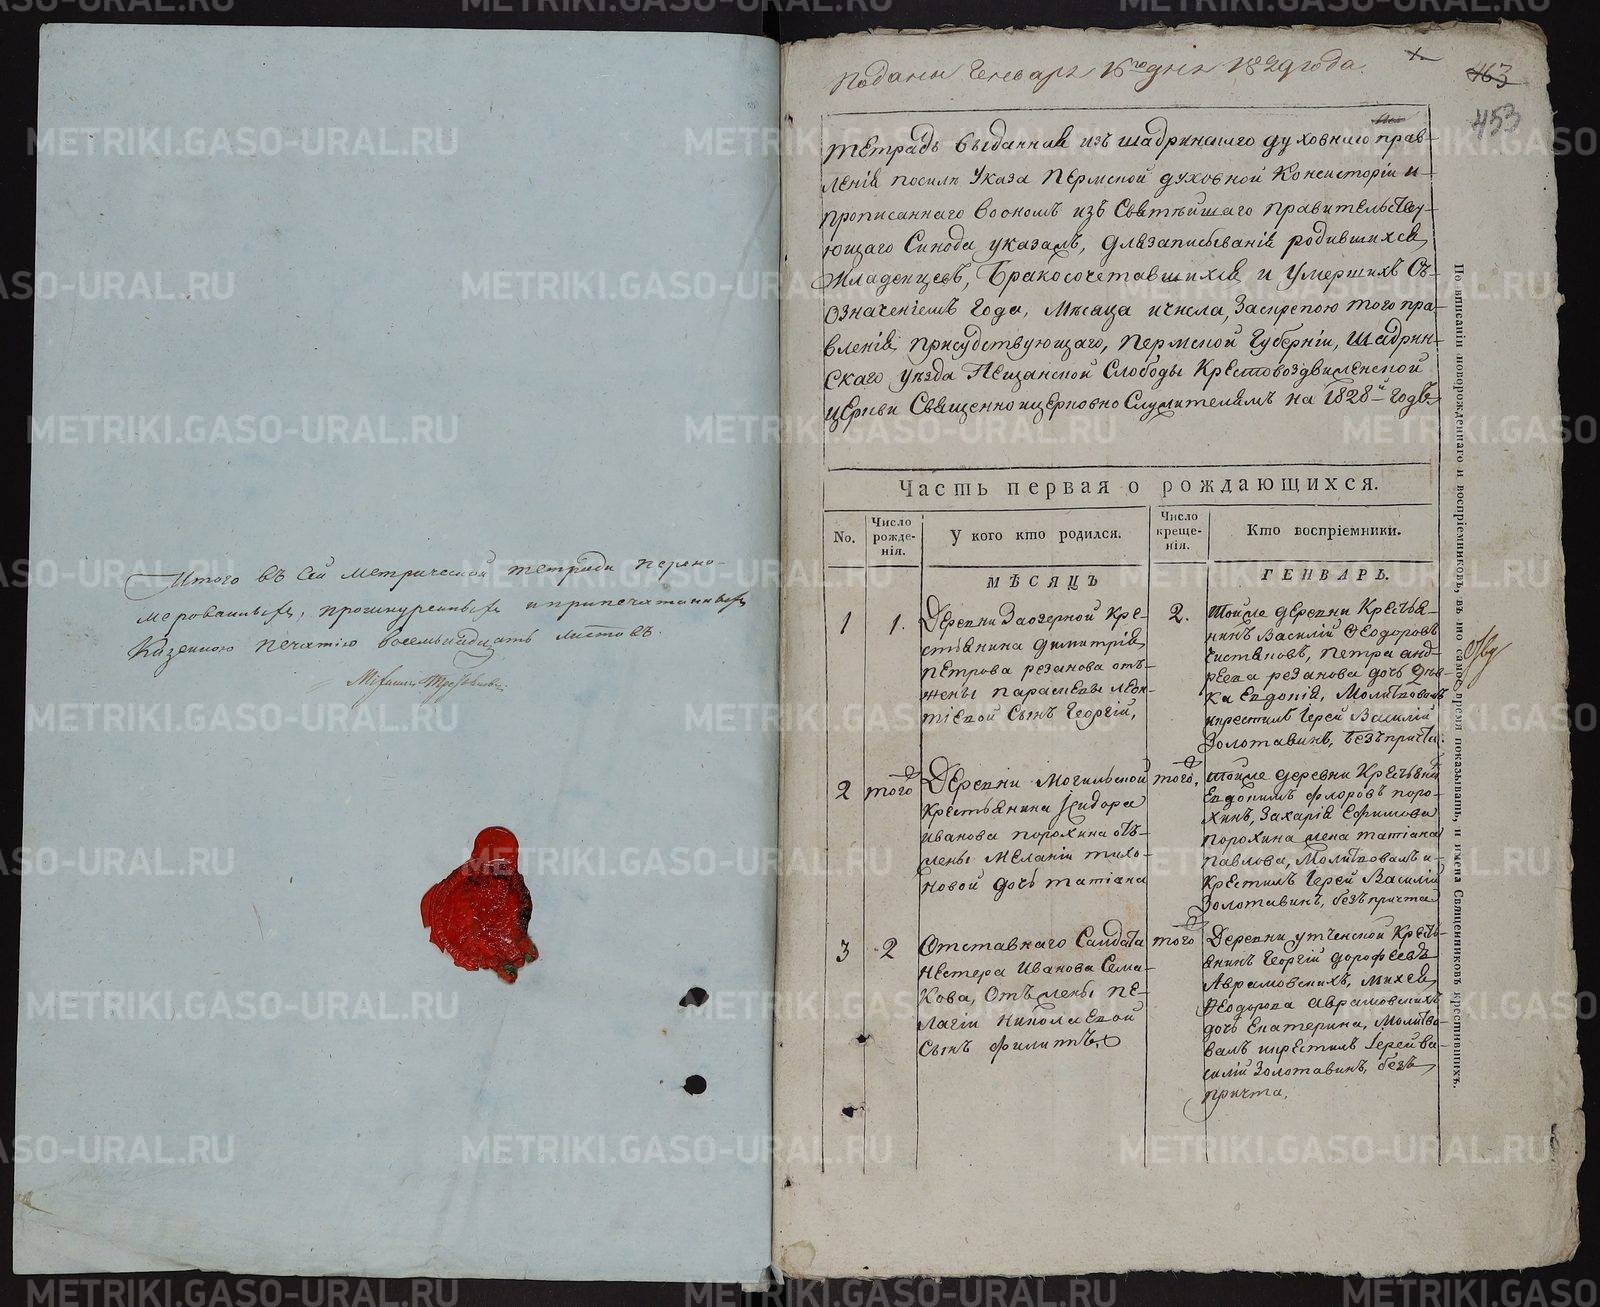 Итого въ сей метрической тетради перено-
мерованныхъ, прошнуренныхъ и припечатанныхъ
Казенною печатію восемьнадцать листовъ.
Поданы Генваря 16го дня 1829 года.
463
453
Тетрадь выданная изъ Шадринскаго духовнаго прав-
ленія посилѣ Указа Пермской духовной Консисторіи и
прописаннаго воономъ изъ Святѣйшаго Правительству-
ющаго Синода указамъ, для записыванія родившихся
Младенцевъ, Бракосочетавшихся и Умершихъ съ
означеніемъ года, Мѣсяца и числа, Заскрепою того пра-
вленія присудствующаго, Пермской Губерніи, Шадрин-
скаго уѣзда Пещанской Слободы Крестовоздвиженской
церкви Священноицерковно Служителямъ на 1828й годъ
Часть первая о рождающихся.
No.
Число рожде-нія.
У кого кто родился.
Число креще-нія.
Кто воспріемники.
МѢСЯЦЪ
ГЕНВАРЬ.
1
1.
Деревни Заозерной Кре-
стьянина Димитрія
Петрова резанова отъ
жены параскевы леон-
тіевой Сынъ Георгій,
2.
Тойже деревни Крестья-
нинъ Василій Ѳеодоровъ
Чистяковъ, Петра анд-
реева резанова дочь дѣв-
ка Евдокія, Молитвовалъ
икрестилъ Іерей Василій
Золотавинъ, безъ причта.
2
того
Деревни Могильской
Крестьянина Исидора
Иванова порохина отъ
жены Меланіи тихо-
новой дочь татіана
того,
Тойже деревни Крестьянинъ
Евдокимъ флоровъ поро-
хинъ, Захарія Ефимова
порохина жена татіана
павлова, Молитвовалъ и
Крестилъ Іерей Василій
Золотавинъ, безъ причта
3
2
Отставнаго Салдата
Нестера Иванова Сема-
кова, Отъ жены пе-
лагіи николаевой
Сынъ филиппъ,
того
Деревни утченской Кресть-
янинъ Георгій дорофеевъ
Аврамовскихъ, михея
Ѳеодорова аврамовскихъ
дочь Екатерина, Молитво-
валъ икрестилъ Іерей Ва-
силій Золотавинъ, безъ
причта,
По вписаніи новорожденнаго и воспріемниковъ, въ то самое время показывать, и имена Священниковъ крестившихъ.
METRIKI.GASO-URAL.RU